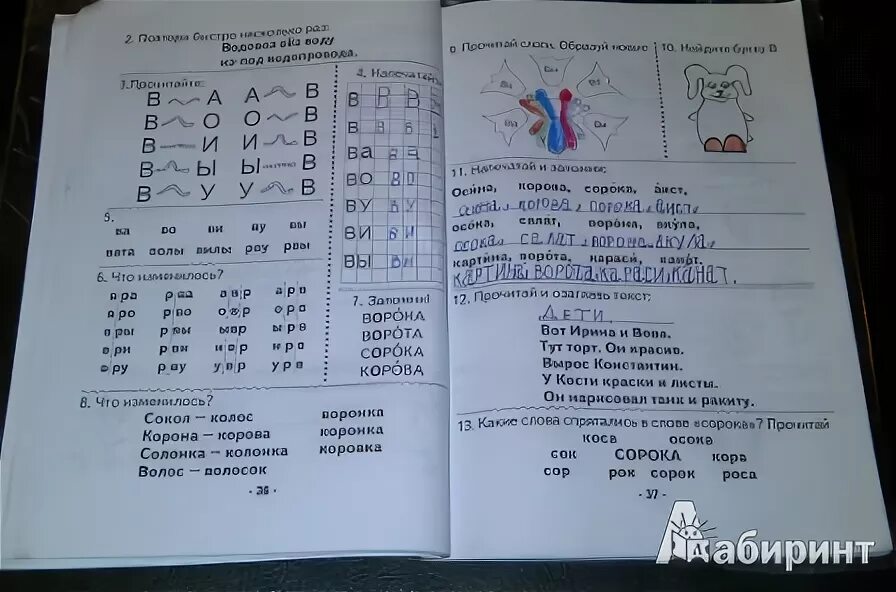 2. Повтори быстро несколько раз:
Водовоз вёз воду
из под водопровода.
3. Прочитайте:
В А А В
В О О В
В И И В
В Ы Ы В
В У У В
4. Напечатай
В В В
в в в
ва ва
во во
ву ву
ви ви
вы вы
5.
ва во ви ву вы
вата волы вилы рву рвы
6. Что изменилось?
ара рва авр арв
вро рво овр орв
вры рвы ывр ырв
ври рви ивр ирв
вру рву увр урв
7. Запомни!
ВОРО́НА
ВОРО́ТА
СОРО́КА
КОРО́ВА
8. Что изменилось?
Сокол – колос воронка
Корона – корова коронка
Солонка – колонка коровка
Волос – волосок
- 36 -
9. Прочитай слоги. Образуй новые
10. Найдите букву В
11. Напечатай и запомни:
Оси́на, корова, соро́ка, аист,
осока, салат, воро́на, акула,
осока, салат, ворона, акула,
картина, воро́та, караси, канат.
КАРТИНА, ВОРОТА, КАРАСИ, КАНАТ.
12. Прочитай и озаглавь текст:
ДЕТИ
Вот Ирина и Вова.
Тут торт. Он красив.
Вырос Константин.
У Кости краски и листы.
Он нарисовал танк и ракиту.
13. Какие слова спрятались в слове «сорока»? Прочитай
коса осока
сок СОРОКА кора
сор рок сорок роса
- 37 -
Лабиринт